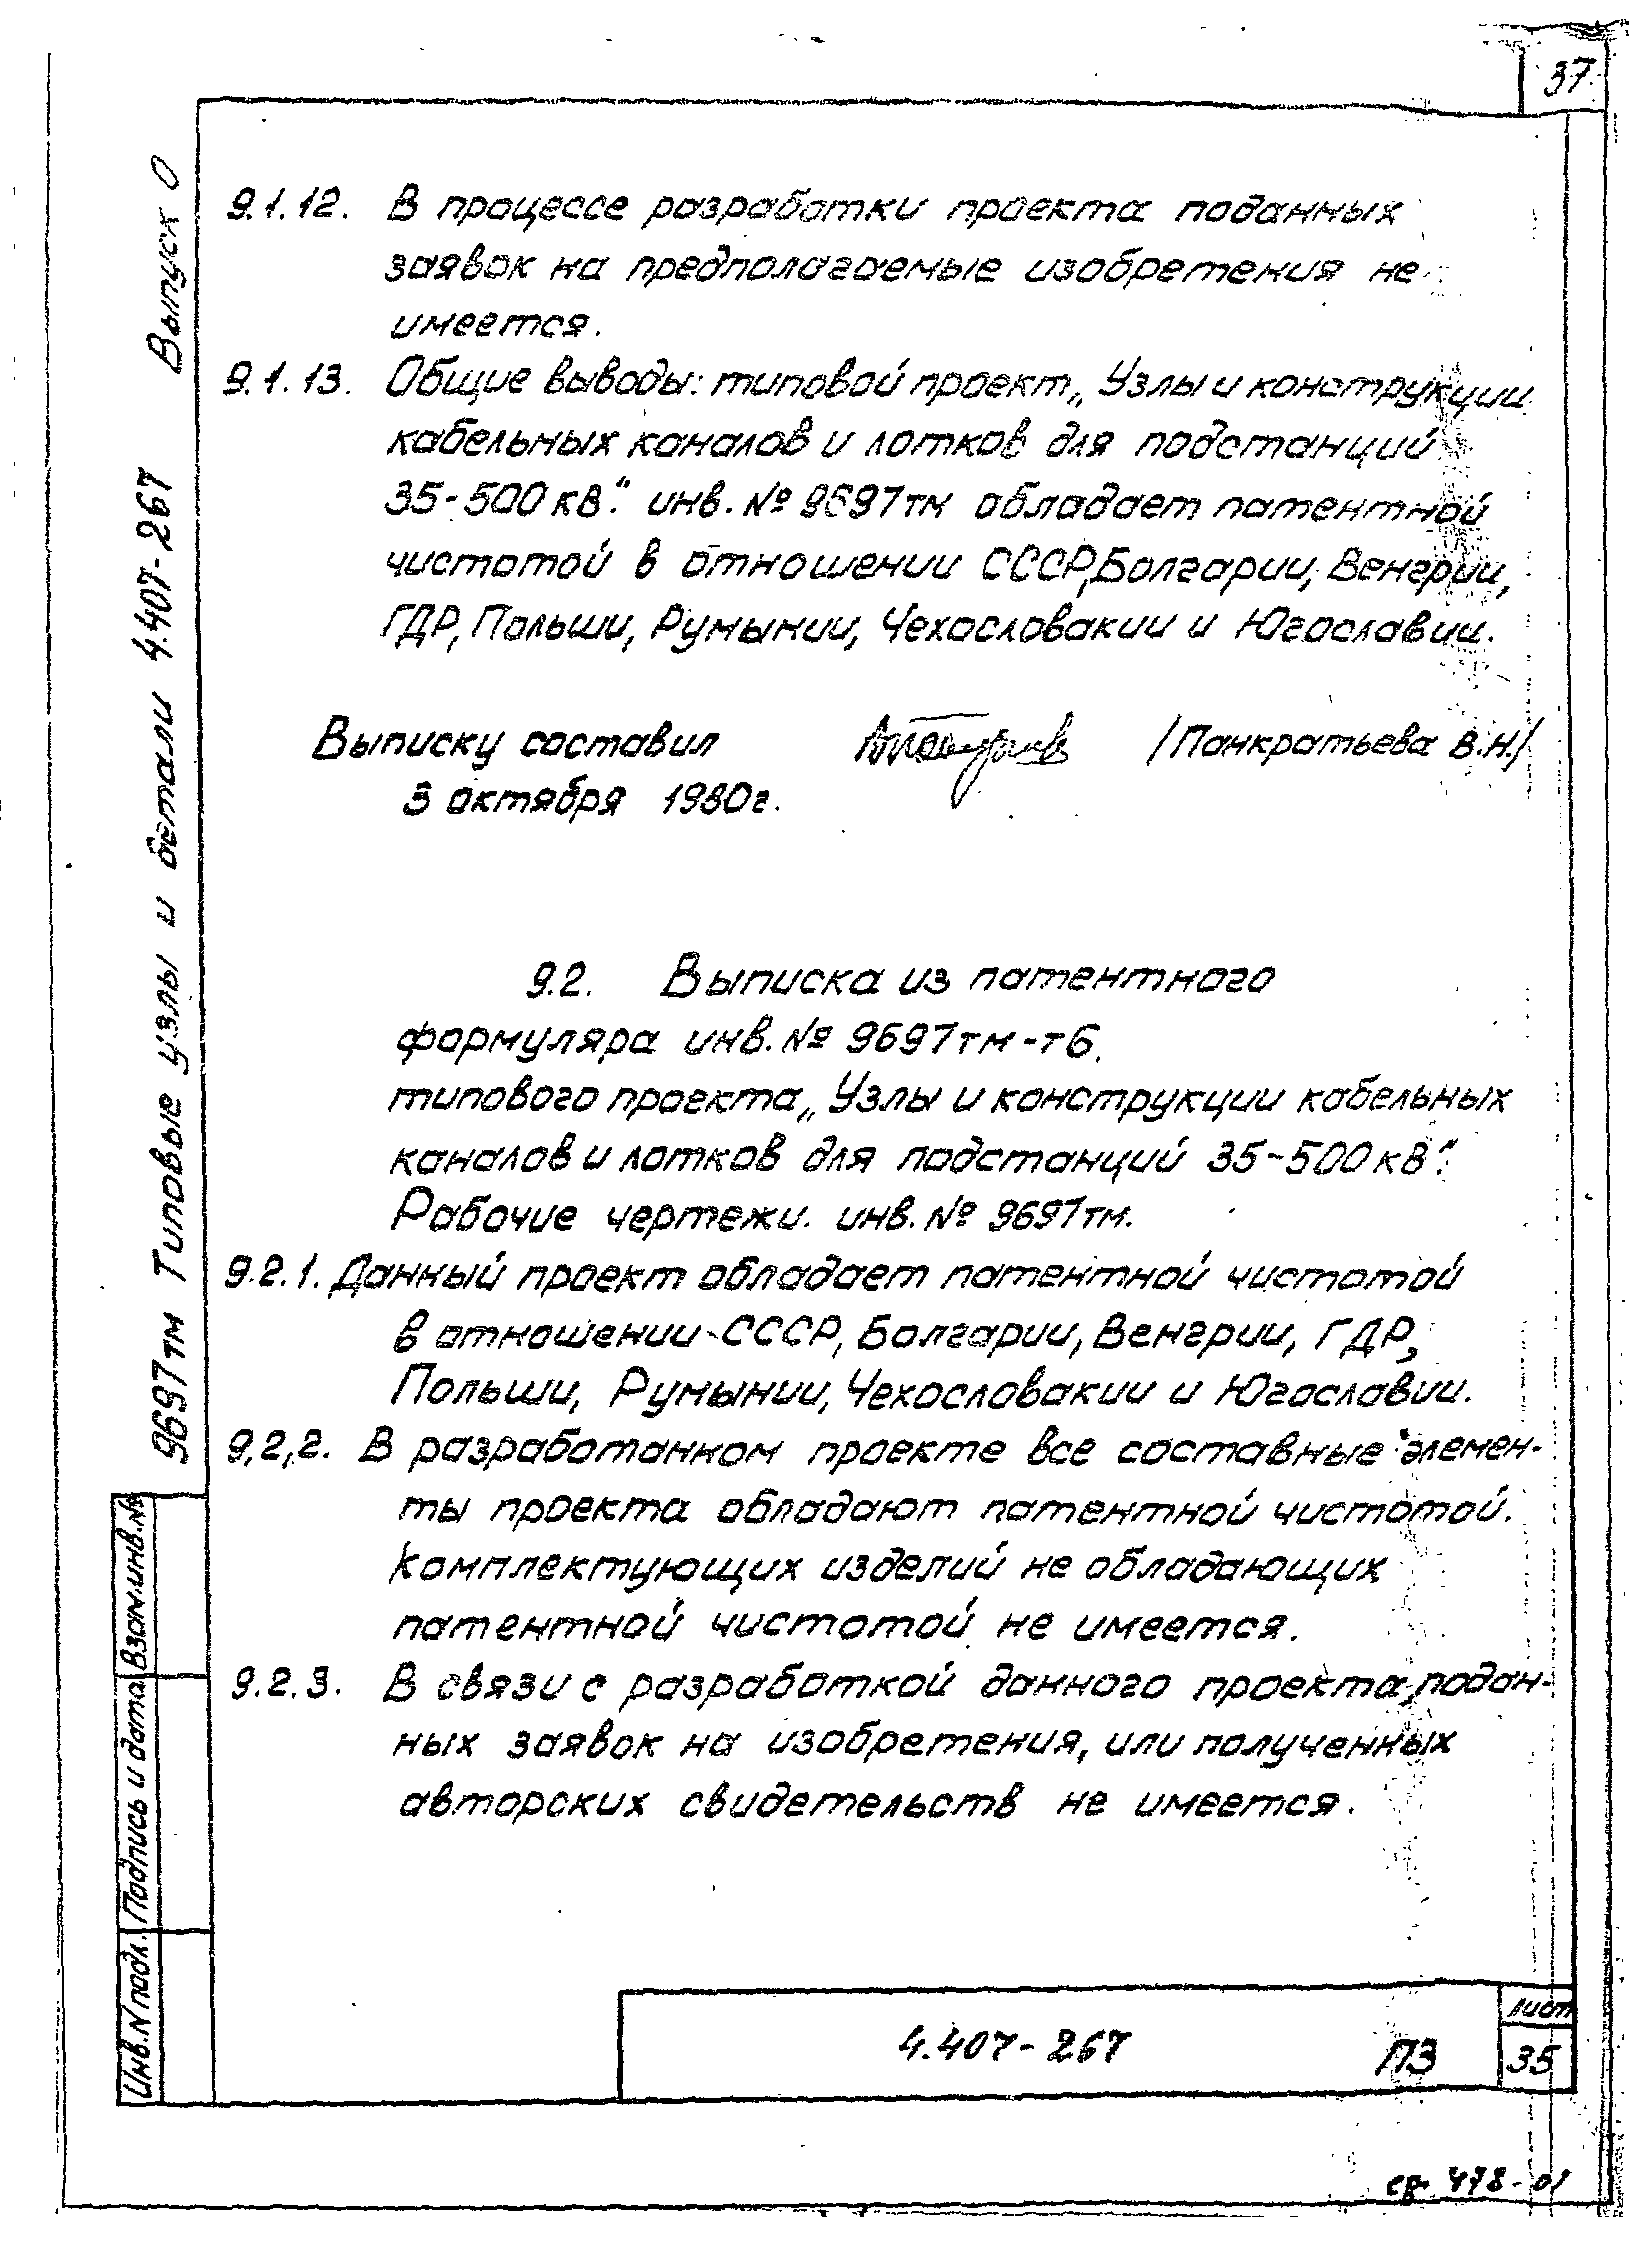 37
9.1.12. В процессе разработки проекта поданных
заявок на предполагаемые изобретения не
имеется.
9.1.13. Общие выводы: типовой проект „Узлы и конструкции
кабельных каналов и лотков для подстанций
35-500 кВ“. инв. № 9697тм обладает патентной
чистотой в отношении СССР, Болгарии, Венгрии,
ГДР, Польши, Румынии, Чехословакии и Югославии.
Выписку составил /Панкратьева В.Н./
3 октября 1980г.
9.2. Выписка из патентного
формуляра инв. № 9697тм-т6.
типового проекта „Узлы и конструкции кабельных
каналов и лотков для подстанций 35-500 кВ“.
Рабочие чертежи. инв. № 9697тм.
9.2.1. Данный проект обладает патентной чистотой
в отношении СССР, Болгарии, Венгрии, ГДР,
Польши, Румынии, Чехословакии и Югославии.
9.2.2. В разработанном проекте все составные элемен-
ты проекта обладают патентной чистотой.
Комплектующих изделий не обладающих
патентной чистотой не имеется.
9.2.3. В связи с разработкой данного проекта, подан-
ных заявок на изобретения, или полученных
авторских свидетельств не имеется.
9697тм Типовые узлы и детали 4.407-267 Выпуск 0
Взам.инв.№
Подпись и дата
Инв.N подл.
4.407-267 ПЗ
Лист
35
ср 478-01